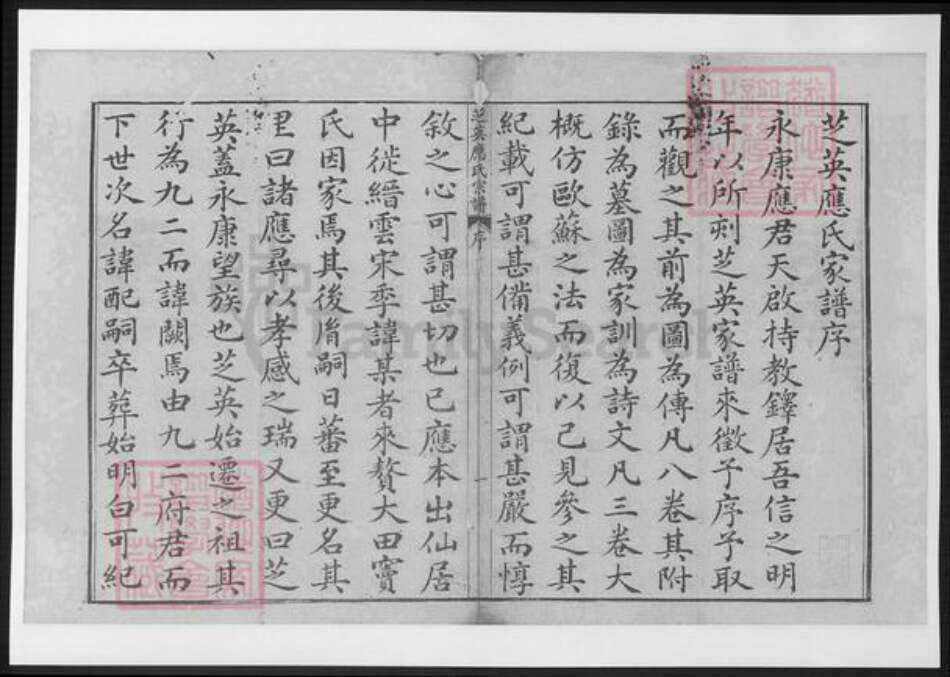 芝英應氏家譜序
永康應君天啟持教鐸居吾信之明
年以所刻芝英家譜來徵予序予取
而觀之其前為圖為傳凡八卷其附
錄為墓圖為家訓為詩文凡三卷大
概仿歐蘇之法而復以己見參之其
紀載可謂甚備義例可謂甚嚴而惇
芝英應氏宗譜 序 一
敘之心可謂甚切也已應本出仙居
中徙縉雲宋季諱某者來贅大田竇
氏因家焉其後胤嗣日蕃至更名其
里曰諸應尋以孝感之瑞又更曰芝
英蓋永康望族也芝英始遷之祖其
行為九二而諱闕焉由九二府君而
下世次名諱配嗣卒葬始明白可紀
FamilySearch